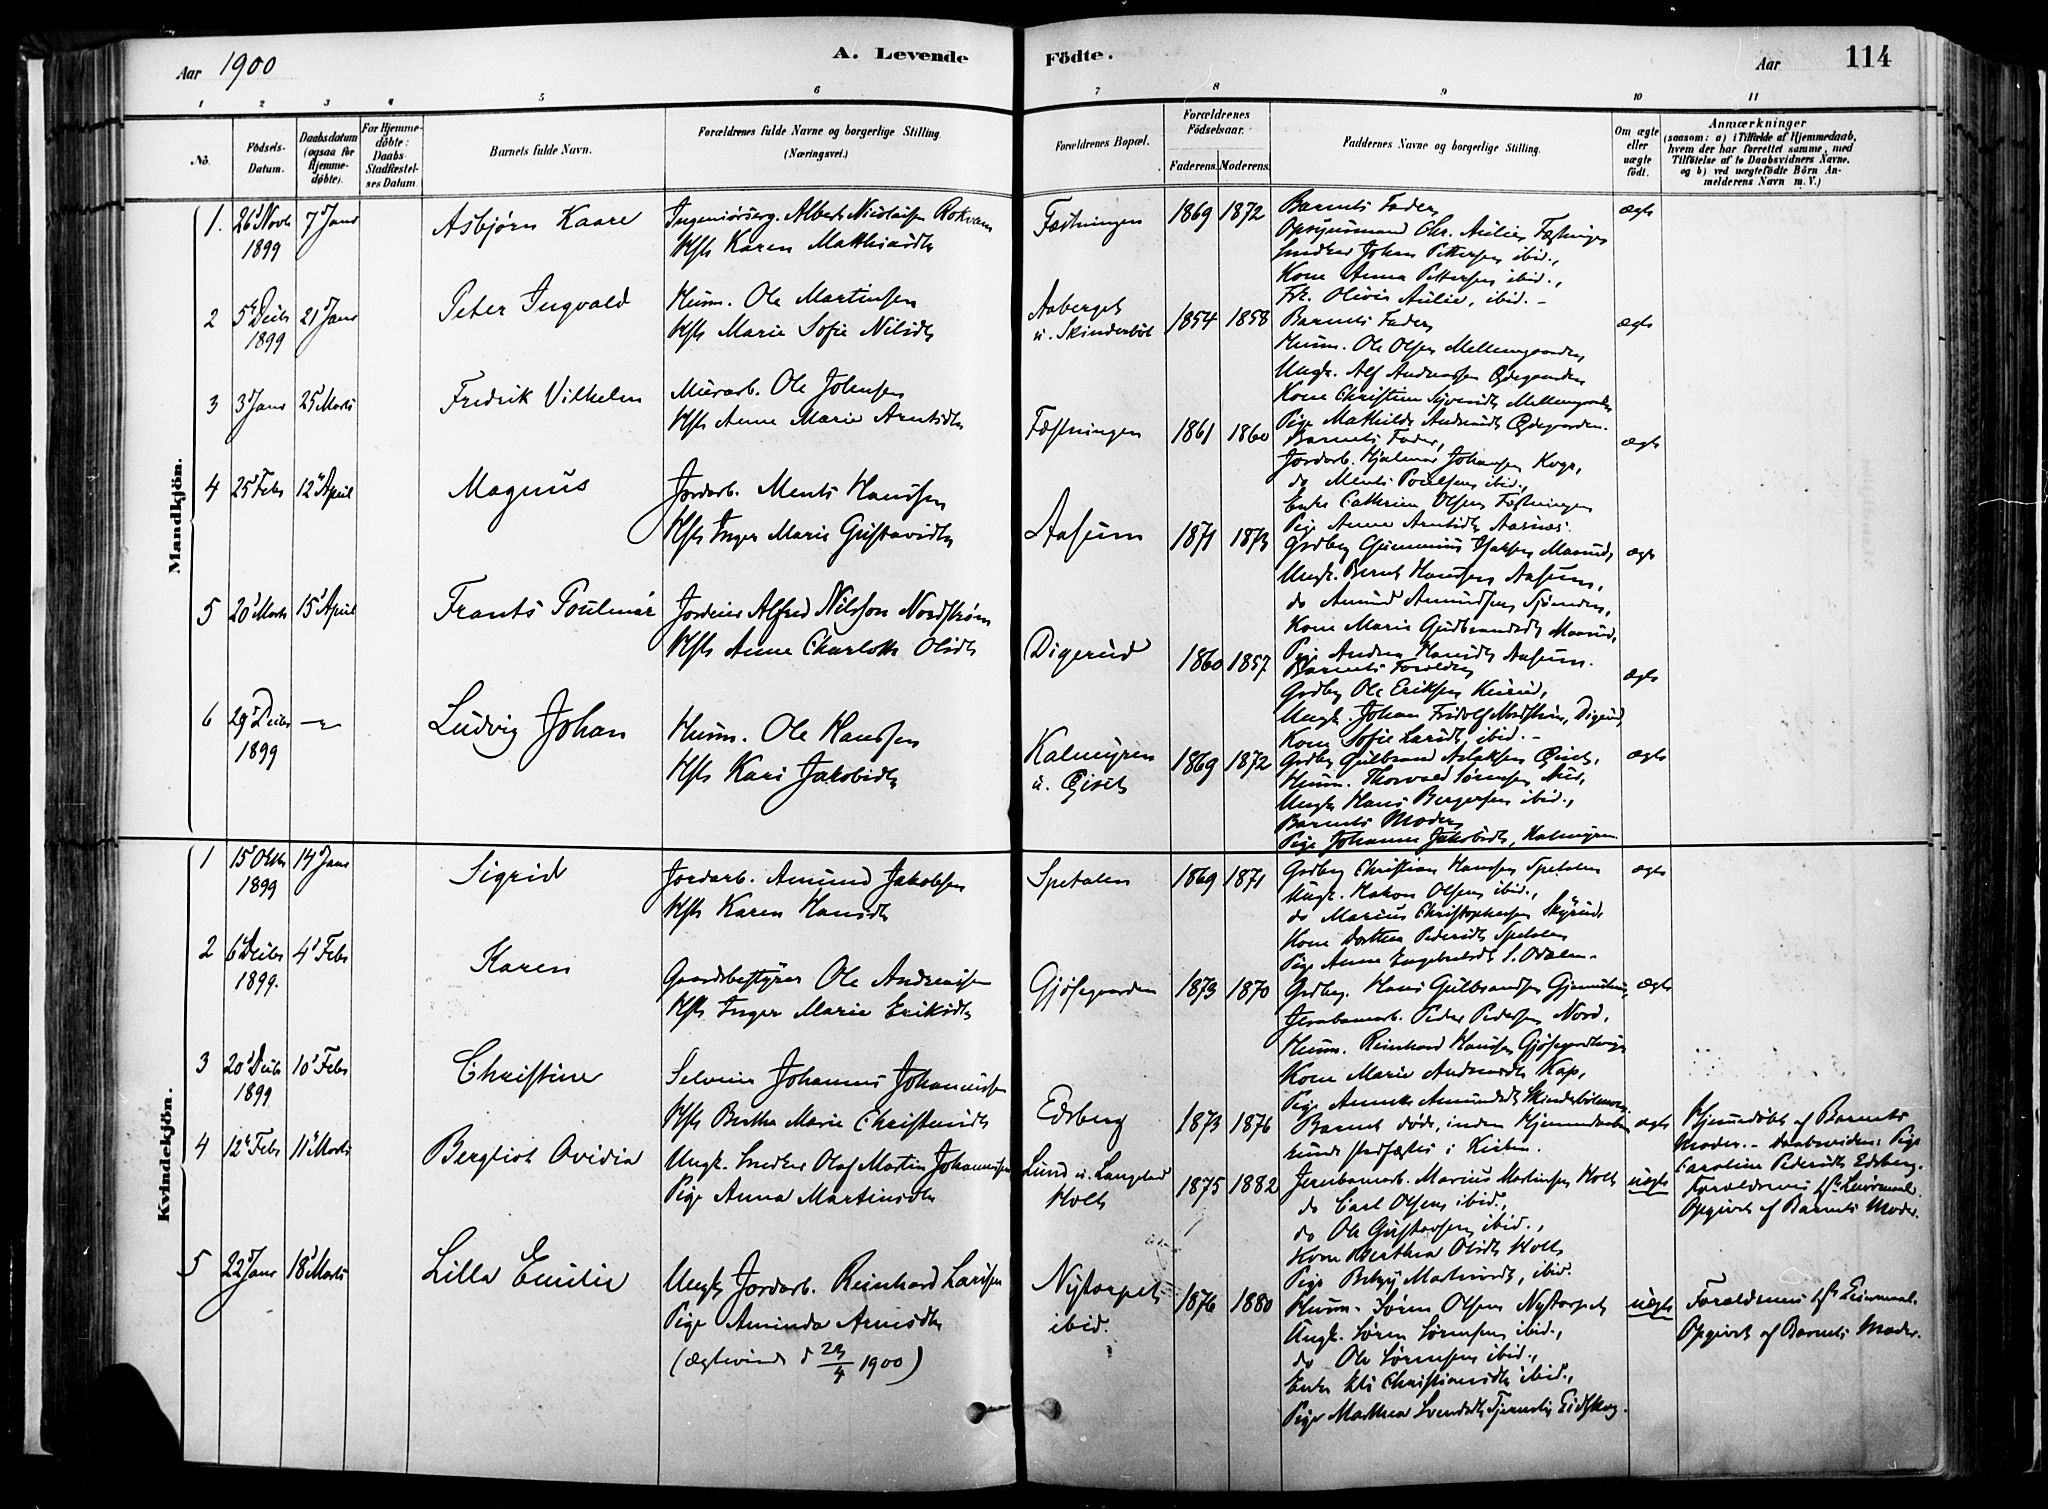 Aar 1900
A. Levende
Födte.
Aar
114
1 2 3 4 5 6 7 8 9 10 11
No.
Födsels-
Datum.
Daabsdatum
(ogsaa for
Hjemme-
döbte).
For Hjemme-
döbte:
Daabs-
Stadfæstel-
ses Datum.
Barnets fulde Navn.
Forældrenes fulde Navne og borgerlige Stilling.
(Næringsvei.)
Forældrenes Bopæl.
Forældrenes
Födselsaar.
Faderens. Moderens.
Faddernes Navne og borgerlige Stilling.
Om ægte
eller
uægte
födt.
Anmærkninger
(saasom: a) i Tilfælde af Hjemmedaab,
hvem der har forrettet samme, med
Tilföielse af to Daabsvidners Navne,
og b) ved uægtefödte Börn An-
melderens Navn m. V.)
Mandkjön.
1. 26 Novb 1899
7 Janr
Asbjørn Kaare
Albert Nicolaisen Rokvam
Hst Karen Matthiasdtr
Fæstningen
1869 1872
Barnets Fader,
Opsynsmand Chr. Aulie, Fæstningen
Snedker Johan Pettersen ibid.,
Kone Anna Pettersen ibid.,
Frk. Olivie Aulie, ibid. -
ægte
2 5 Decbr 1899
21 Janr
Peter Ingvald
Husm. Ole Martinsen
Hst Marie Sofie Nilsdtr
Aaberget
u. Skinderböl
1854 1858
Barnets Fader,
Husm. Ole Olsen Mellemgaarden
Ungk. Alf Andreassen Ødegaarden
Kone Christine Syversdtr Mellemgaarden
Pige Mathilde Andersdtr Ødegaarden.
ægte
3 3 Janr
25 Marts
Fredrik Vilhelm
Murarb. Ole Johnsen
Hst Anne Marie Arntsdtr
Fæstningen
1861 1860
Barnets Fader,
Jordarb. Hjalmar Johansen
do Ments Poulsen ibid.,
Enke Cathrine Olsen Fæstningen
Pige Anne Arntsdtr Aasnes.
ægte
4 25 Febr
12 April
Magnus
Jordarb. Ments Hansen
Hst Inger Marie Gustavsdtr
Aasum
1871 1873
Ungk. Bernt Hansen Aasum,
do Amund Amundsen
Kone Marie Gudbrandsdtr
Pige Andrea Hansdtr Aasum.
ægte
5 20 Marts
15 April
Frants Poulmar
Jordeier Alfred Nilsson Nordstrøm
Hst Anne Charlotte Olsdtr
Digerud
1860 1857
Barnets Forældre
Grdbr Ole Eriksen
Ungk. Johan Fridolf Nordstrøm, Digerud,
Kone Sofie Larsdtr, ibid. -
ægte
6 29 Decbr 1899
Ludvig Johan
Husm. Ole Hanssen
Hst Kari Jakobsdtr
Kalmyren
1869 1872
Grdbr Gulbrand Aslaksen
Husm. Thorvald Sørensen
Ungk Hans Bergersen ibid.,
Barnets Moder,
Pige Johanne Jakobsdtr, Kalmyren
ægte
Kvindekjön.
1 15 Oktbr 1899
14 Janr
Sigrid
Jordarb. Amund Jakobsen
Hst Karen Hansdtr
Spetalen
1869 1871
Grdbr Christian Hansen Spetalen
Ungk. Hakon Olsen ibid.,
do Marius Christophersen
Kone Dorthea Pedersdtr Spetalen
Pige Anne Engebretsdtr S. Odalen
ægte
2 6 Decbr 1899.
4 Febr
Karen
Gaardsbestyrer Ole Andreassen
Hst Inger Marie Eriksdtr
Gjøsegaarden
1873 1870
Grdbr. Hans Gulbrandsen
Jernbanearb. Peder Pedersen Nord,
Husm. Reinhard Hansen
Kone Marie Andersdtr Kap,
Pige Annette Amundsdtr
ægte
3 20 Decbr 1899
10 Febr
Christine
Selveier Johannes Johannessen
Hst Berthe Marie Christiansdtr
Edsberg
1873 1876
Barnet døde, inden Hjemmedaaben
kunde stadfæstes i Kirken.
ægte
Hjemmedøbt af Barnets
Moder. - Daabsvidner: Pige
Caroline Pedersdtr Edsberg.
4 12 Febr
11 Marts
Bergliot Ovidia
Ungk. Snedker Olaf Martin Johannessen
Pige Anna Martinsdtr
Lund u. Langeland
Holt
1875 1882
Jernbanearb. Marius Martinsen Holt
do Carl Olsen ibid.,
do Ole Gustavsen ibid.,
Kone Marthea Olsdtr Holt
Pige Betzy Martinsdtr, ibid.
uægte
Forældrenes 1ste Leiermaal.
Opgivet af Barnets Moder.
5 22 Janr
18 Marts
Lilla Emilie
Ungk Jordarb. Reinhard Larsen
Pige Aminda Arnesdtr
(ægteviede d 23/4 1900)
Nystorpet
ibid.
1876 1880
Husm. Søren Olsen Nystorpet
Ungk. Søren Sørensen ibid.,
do Ole Sørensen ibid.,
Enke Eli Christiansdtr ibid.,
Pige Marthea Svendsdtr Eidskog.
uægte
Forældrenes 1ste Leiermaal.
Opgivet af Barnets Moder.